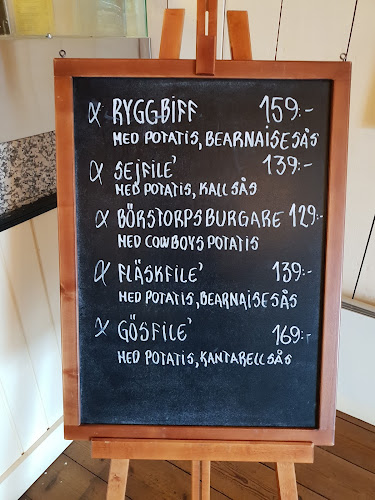 RYGGBIFF 159:-
MED POTATIS, BEARNAISESÅS
SEJFILE' 139:-
MED POTATIS, KALLSÅS
BÖRSTORPSBURGARE 129:-
MED COWBOYSPOTATIS
FLÄSKFILE' 139:-
MED POTATIS, BEARNAISESÅS
GÖSFILE' 169:-
MED POTATIS, KANTARELLSÅS